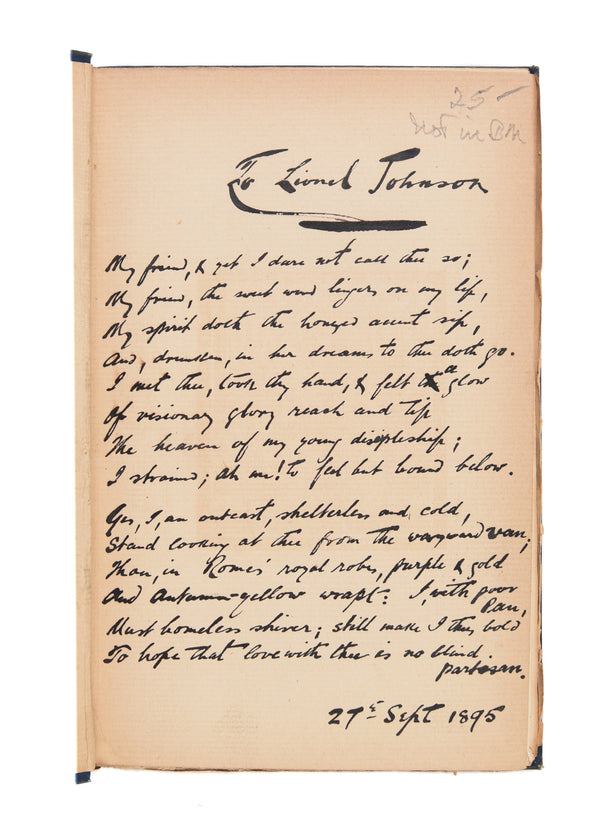 25-
Not in BM
To Lionel Johnson
My friend, & yet I dare not call thee so;
My friend, the sweet word lingers on my lip,
My spirit doth the honeyed accent sip,
And, drunken, in her dreams to thee doth go.
I met thee, took thy hand, & felt a glow
Of visionary glory reach and tip
The heaven of my young discipleship;
I strained; Ah me! to feel but bound below.
Yes, I, an outcast, shelterless and cold,
Stand looking at thee from the wayward van;
Thou, in Rome's royal robes, purple & gold
And Autumn-yellow wrapt: I, with poor
Pan,
Must homeless shiver; still make I thus bold
To hope that love with thee is no blind
partesan.
27th Sept 1895